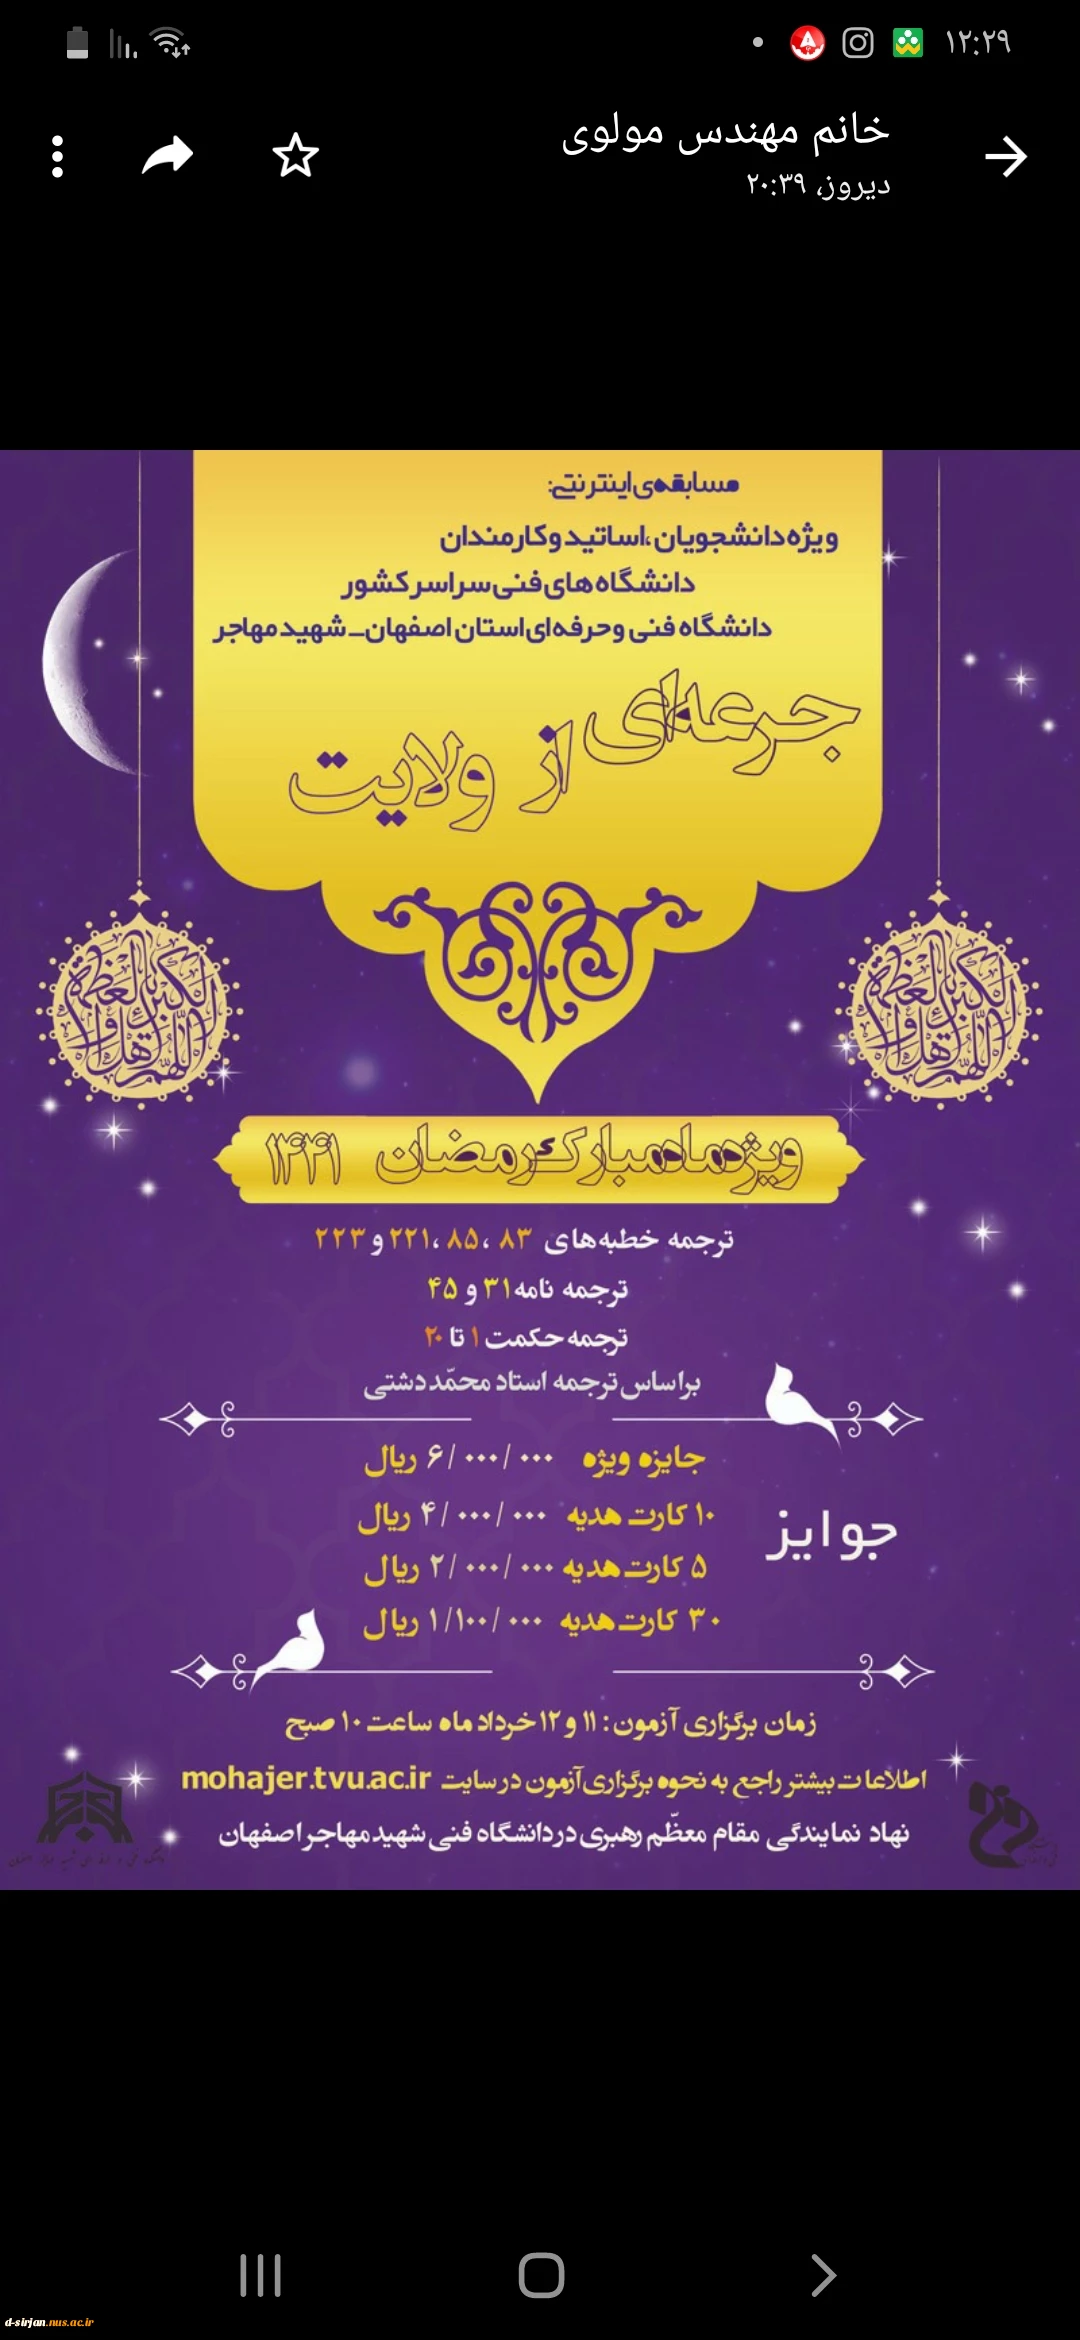 ۱۲:۲۹
خانم مهندس مولوی
دیروز، ۲۰:۳۹
مسابقه‌ی اینترنتی:
ویژه دانشجویان، اساتید و کارمندان
دانشگاه های فنی سراسر کشور
دانشگاه فنی و حرفه‌ای استان اصفهان_ شهید مهاجر
جرعه‌ای از ولایت
اللهم اهل الکبریاء و العظمة
اللهم اهل الکبریاء و العظمة
ویژه ماه مبارک رمضان ۱۴۴۱
ترجمه خطبه‌های ۸۳ ،۸۵ ،۲۲۱ و ۲۲۳
ترجمه نامه ۳۱ و ۴۵
ترجمه حکمت ۱ تا ۲۰
براساس ترجمه استاد محمّد دشتی
جوایز
جایزه ویژه ۶/۰۰۰/۰۰۰ ریال
۱۰ کارت هدیه ۴/۰۰۰/۰۰۰ ریال
۵ کارت هدیه ۲/۰۰۰/۰۰۰ ریال
۳۰ کارت هدیه ۱/۱۰۰/۰۰۰ ریال
زمان برگزاری آزمون: ۱۱ و ۱۲ خرداد ماه ساعت ۱۰ صبح
اطلاعات بیشتر راجع به نحوه برگزاری آزمون در سایت mohajer.tvu.ac.ir
نهاد نمایندگی مقام معظّم رهبری در دانشگاه فنی شهید مهاجر اصفهان
d-sirjan.nus.ac.ir